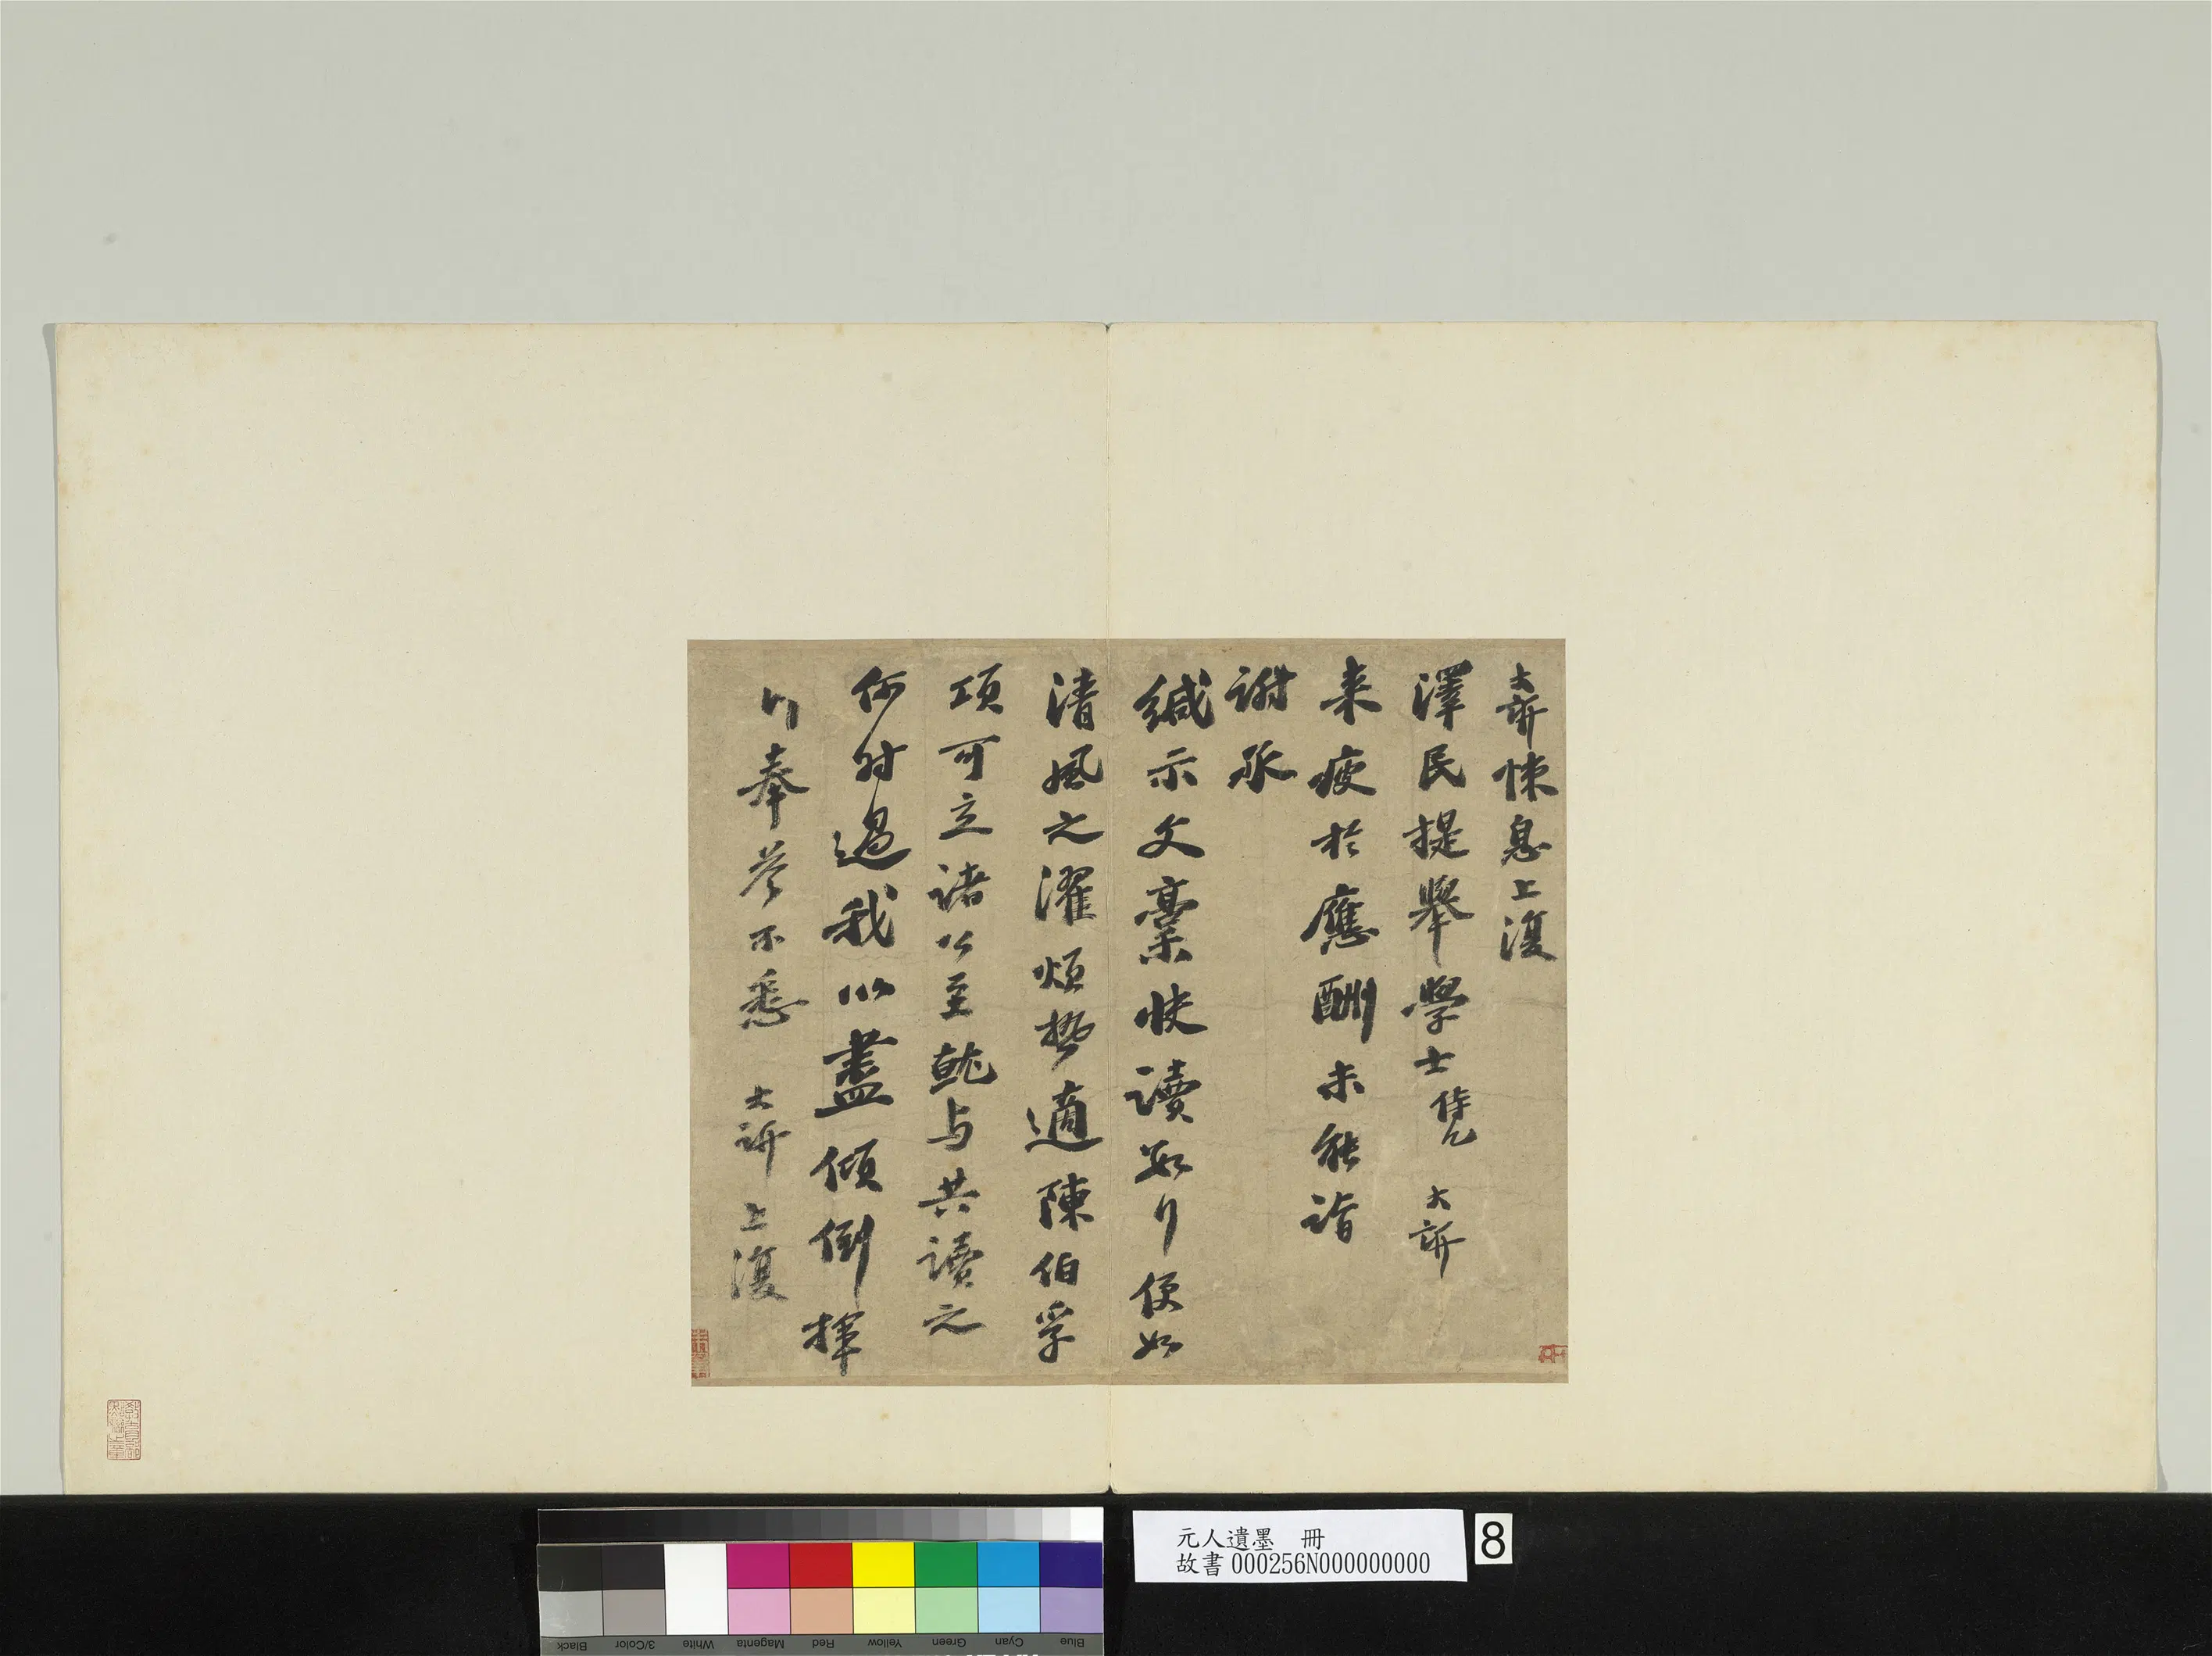 大訢悚息上復
澤民提舉學士侍 大訢
来疲於應酬未能詣
謝承
緘示文稾快讀数行便如
清風之濯煩熱適陳伯孚
項可立諸公至就与共讀之
何时過我以盡傾倒揮
汗奉答不悉 大訢上復
元人遺墨 冊
故書000256N000000000
8
Black
3/Color
White
Magenta
Red
Yellow
Green
Cyan
Blue